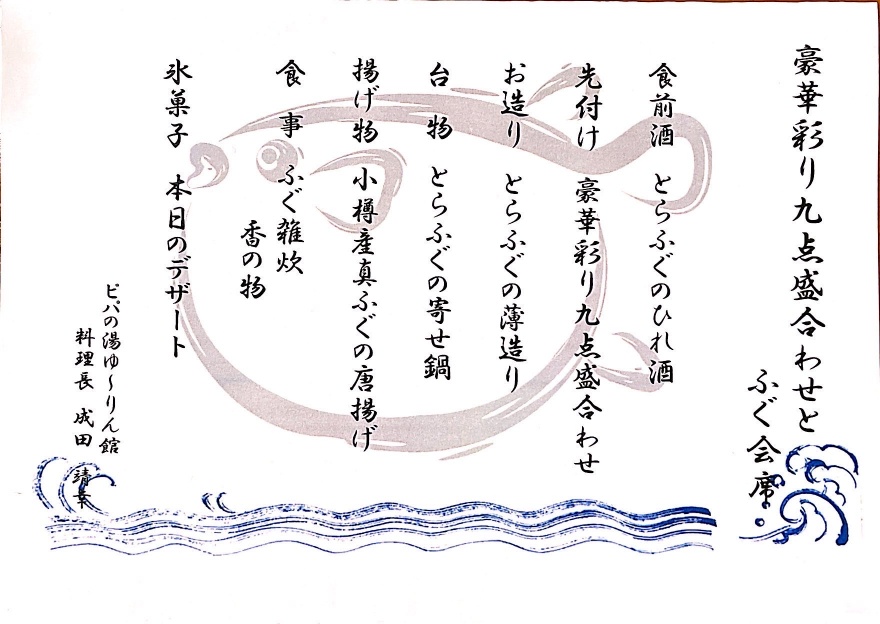 豪華彩り九点盛合わせと
ふぐ会席
食前酒 とらふぐのひれ酒
先付け 豪華彩り九点盛合わせ
お造り とらふぐの薄造り
台物 とらふぐの寄せ鍋
揚げ物 小樽産真ふぐの唐揚げ
食事 ふぐ雑炊
香の物
氷菓子 本日のデザート
ピパの湯ゆ〜りん館
料理長 成田 靖幸